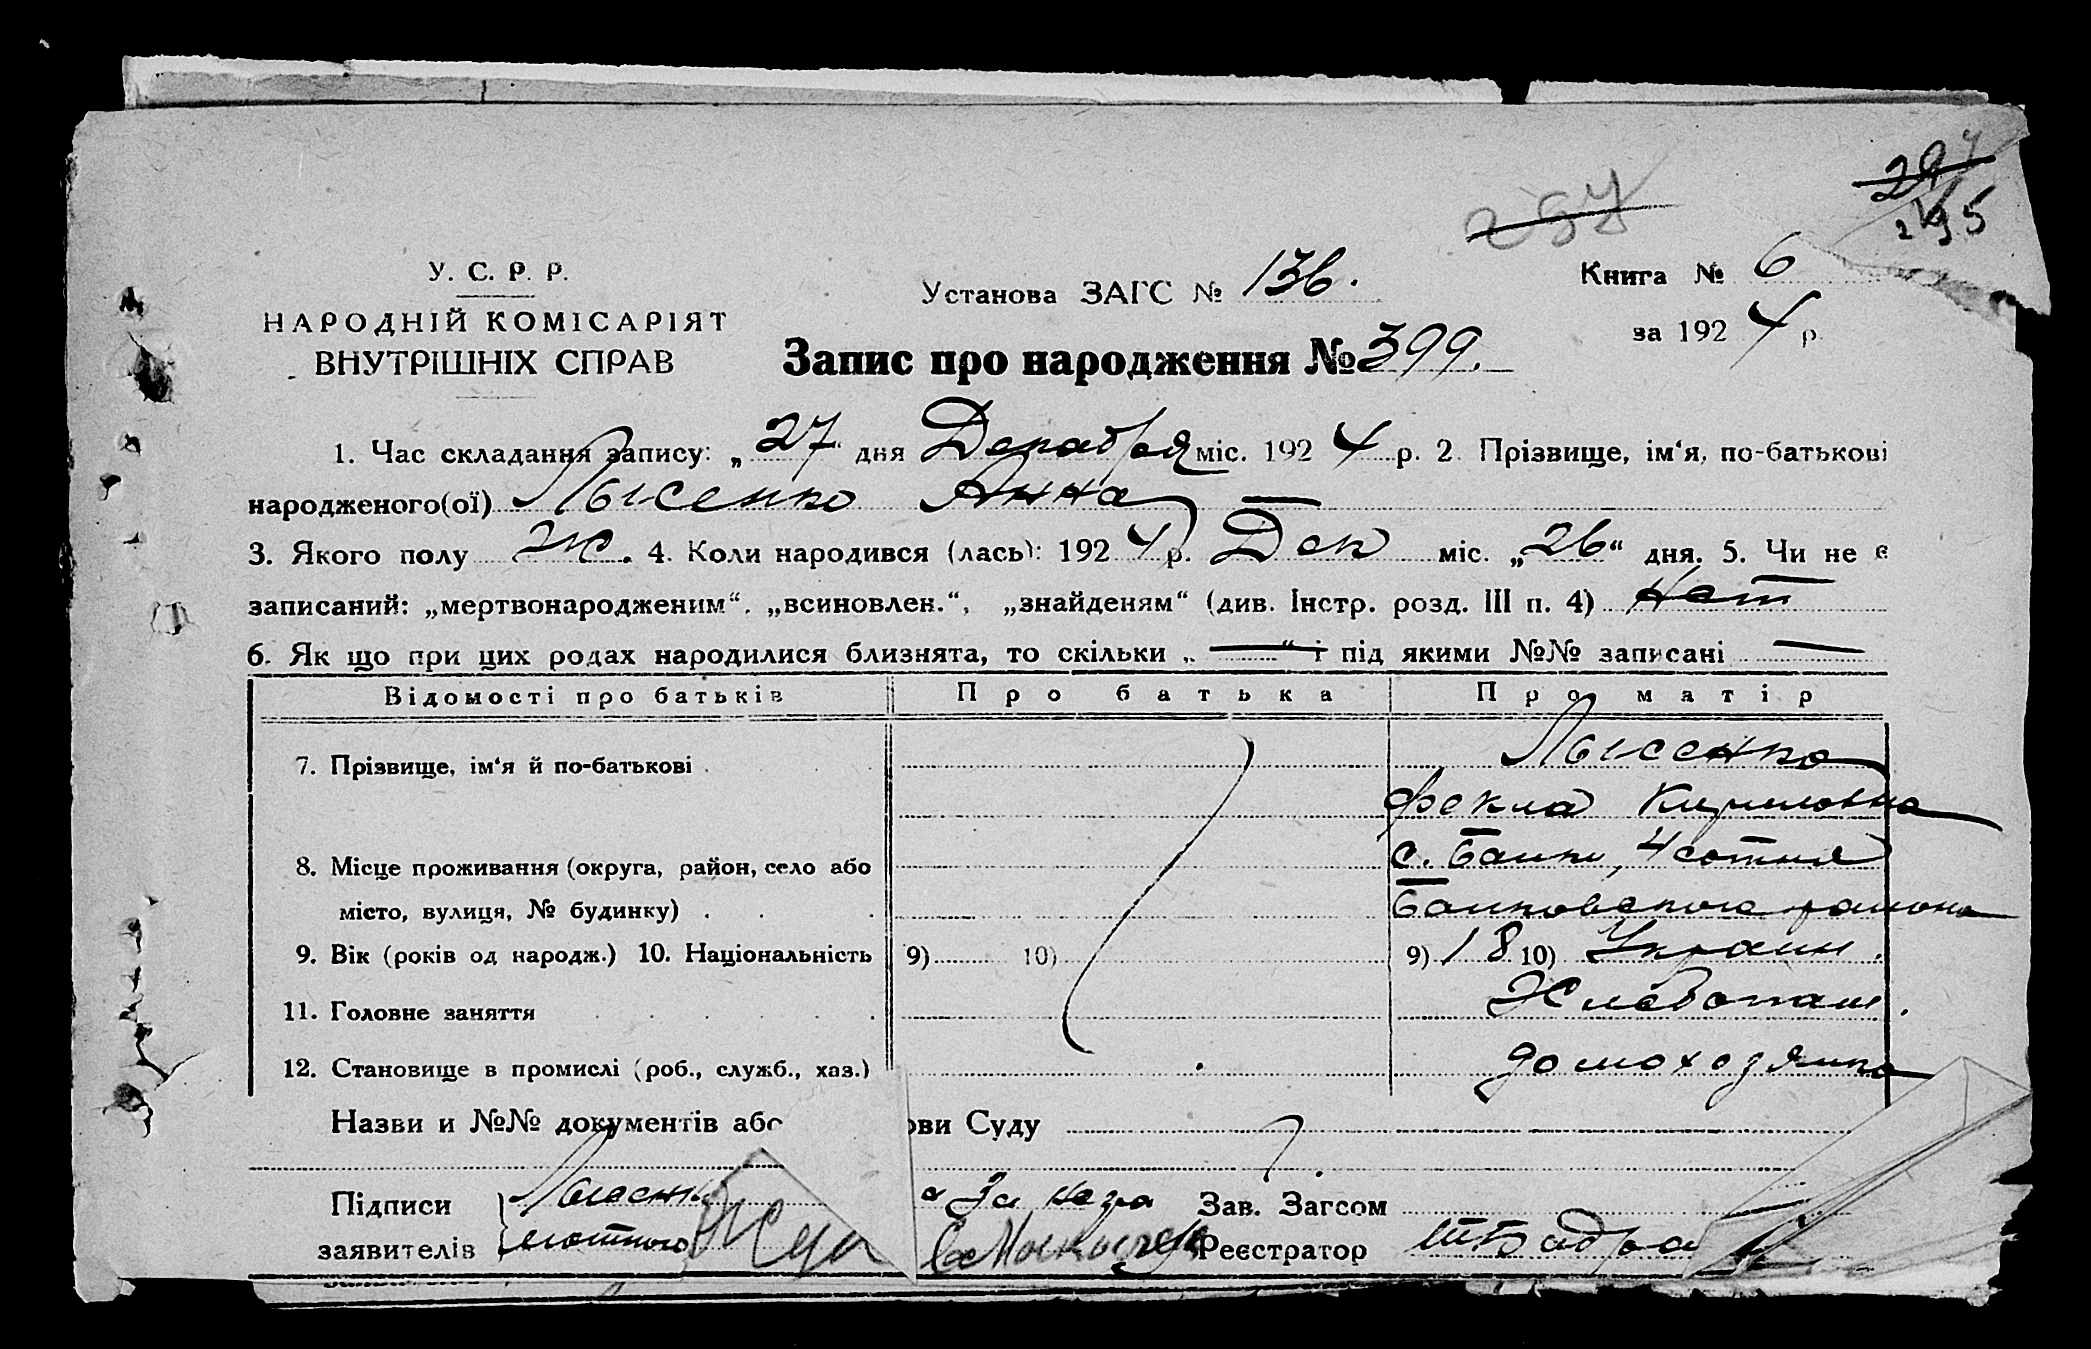 297
295
257
У. С. Р. Р.
Установа ЗАГС № 136.
Книга № 6
НАРОДНІЙ КОМІСАРІЯТ
за 1924 р.
ВНУТРІШНІХ СПРАВ
Запис про народження № 399.
1. Час складання запису: „27“ дня Декабря міс. 1924 р. 2. Прізвище, ім‘я, по-батькові
народженого(ої) Лысенко Анна
3. Якого полу ж. 4. Коли народився (лась): 1924 р. Дек міс. „26“ дня. 5. Чи не є
записаний: „мертвонародженим“, „всиновлен.“, „знайденям“ (див. Інстр. розд. III п. 4) Нет
6. Як що при цих родах народилися близнята, то скільки „—“ і під якими №№ записані —
Відомості про батьків Про батька Про матір
7. Прізвище, ім‘я й по-батькові Лысенко
Фекла Кириловна
8. Місце проживання (округа, район, село або с. Банки, 4 сотня
місто, вулиця, № будинку) Банковского района
9. Вік (років од народж.) 10. Національність 9) 10) 9) 18 10) Украин.
11. Головне заняття Хлебопаш.
12. Становище в промислі (роб., служб., хаз.) домохозяйка
Назви и №№ документів або ови Суду
Підписи Лысенк За негр Зав. Загсом
заявителів Реєстратор